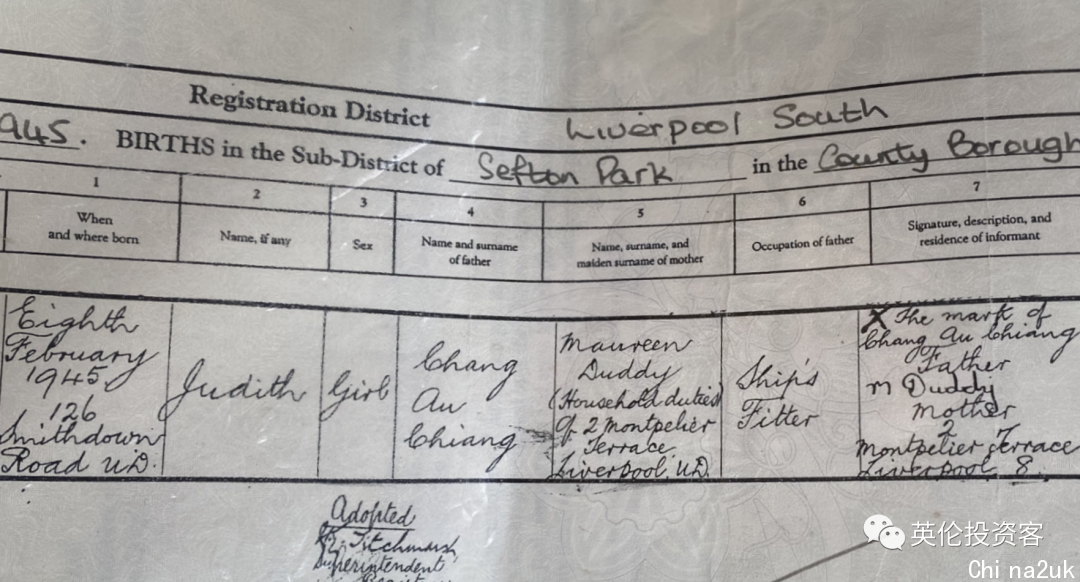 Registration District Liverpool South
945. BIRTHS in the Sub-District of Sefton Park in the County Borough
1 2 3 4 5 6 7
When
and where born
Name, if any
Sex
Name and surname
of father
Name, surname, and
maiden surname of mother
Occupation of father
Signature, description, and
residence of informant
Eighth
February
1945
126
Smithdown
Road U.D.
Judith
Girl
Chang
Au
Chiang
Maureen
Duddy
(Household duties)
of 2 Montpelier
Terrace
Liverpool. U.D.
Ship's
Fitter
X The mark of
Chang Au Chiang
Father
M Duddy
Mother
2
Montpelier Terrace
Liverpool, 8.
Adopted
Titchmarsh
Superintendent
英伦投资客
Chi na2uk